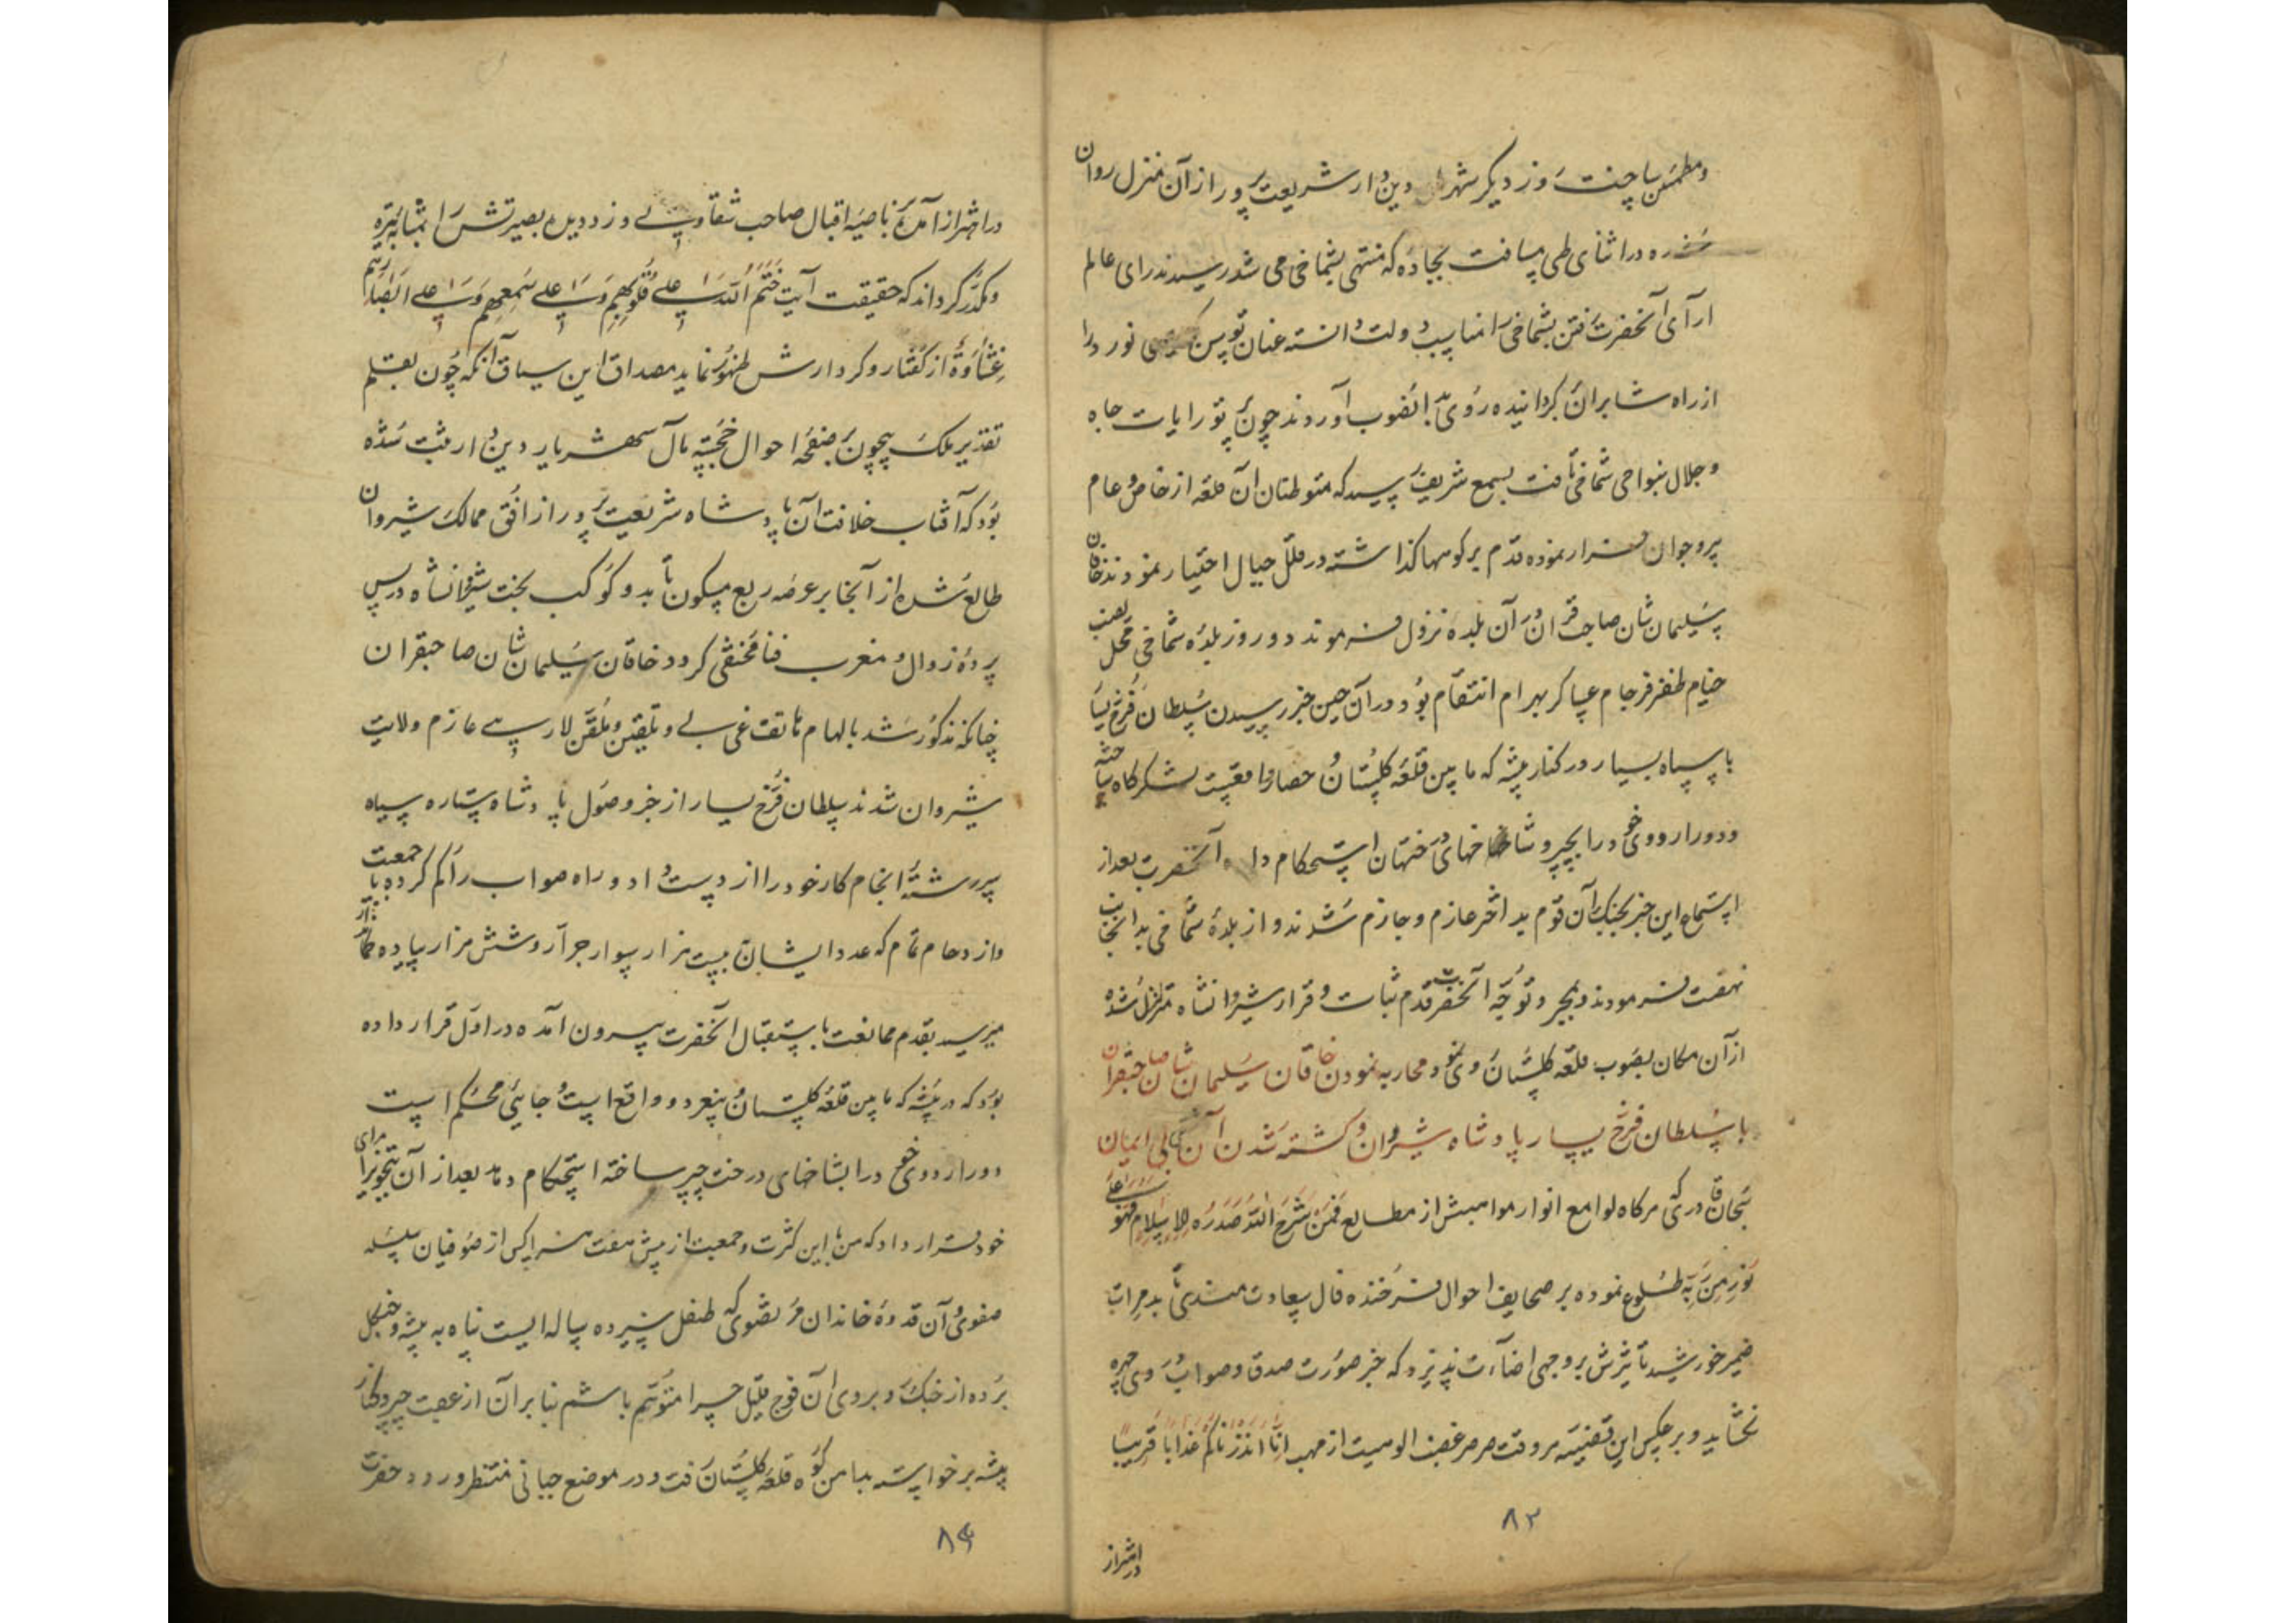 و مطمئن ساختند روز دیگر شهریار دین دار شریعت پرور از آن منزل روان
شده در اثنای طی مسافت بجاده که منتهی بشماخی می شد رسیدند رای عالم
آرای آنحضرت رفتن بشماخی را مناسب دولت دانسته عنان توسن نور را
از راه شابران گردانیده روی بدانصوب آوردند چون پرتو رایات جاه
و جلال بنواحی شماخی تافت بسمع شریف رسید که متوطنان آن قلعه از خاص و عام
پیر و جوان فرار نموده قدم بر کوهها گذاشته در قلل جبال اختیار نمودند خاقان
سلیمان شان صاحب قران در آن بلده نزول فرموند دو روز بلده شماخی محل نصب
خیام ظفر فرجام عساکر بهرام انتقام بود در آن حین خبر رسیدن سلطان فرخ یسار
با سپاه بسیار در کنار بیشه که ما بین قلعه گلستان و حصار واقعست لشکرگاه ساخته
و دور اردوی خود را بچپر و شاخهای درختان استحکام داده آنحضرت بعد از
استماع این خبر بجنگ آن قوم بد اختر عازم و جازم شدند و از بلده شماخی بدانجانب
نهضت فرمودند و بمجرد توجه آنحضرت قدم ثبات و قرار شیروانشاه متزلزل شده
از آن مکان بصوب قلعه گلستان روی نمود و محاربه نمودن خاقان سلیمان شان صاحبقران
با سلطان فرخ یسار پادشاه شیروان و کشته شدن آن بی ایمان
سبحان قادری که هرگاه لوامع انوار مواهبش از مطالع فمن شرح الله صدره للاسلام فهو علی
نور من ربه طلوع نموده بر صحایف احوال فرخنده فال سعادتمندی تابد مرات
ضمیر خورشید تأثیرش بر وجهی اضاءت پذیرد که جز صورت صدق و صواب روی چهره
نگشاید و بر عکس این قضیه هر وقت صرصر غضب الوهیت از مهب انا انذرناکم عذابا قریبا
۸۳
در اهتزاز
در اهتزاز آمده ناصیه اقبال صاحب شقاوتی وزد دیده بصیرتش را بمثابه تیره
و مکدر گرداند که حقیقت آیت ختم الله علی قلوبهم و علی سمعهم و علی ابصارهم
غشاوة از گفتار و کردارش ظهور نماید مصداق این سیاق آنکه چون بقلم
تقدیر ملک بیچون بر صفحه احوال خجسته مآل شهریار دین دار ثبت شده
بود که آفتاب خلافت آن پادشاه شریعت پرور از افق ممالک شیروان
طالع شده از آنجا بر عرصه ربع مسکون تابد و کوکب بخت شیروانشاه در پس
پرده زوال و مغرب فنا مختفی گردد خاقان سلیمان شان صاحبقران
چنانکه مذکور شد بالهام هاتف غیبی و تلقین ملقن لاریبی عازم ولایت
شیروان شدند سلطان فرخ یسار از خبر وصول پادشاه ستاره سپاه
سررشته انجام کار خود را از دست داد و راه صواب را گم کرده با جمعیت
و ازدحام تمام که عدد ایشان به بیست هزار سوار جرار و شش هزار پیاده
میرسید بقدم ممانعت باستقبال آنحضرت بیرون آمده در اول قرار داده
بود که در بیشه که ما بین قلعه گلستان و واقع است و جائی محکم است
دور اردوی خود را بشاخهای درخت چپر ساخته استحکام دهد بعد از آن بتجویز رای
خود قرار داد که من با این کثرت و جمعیت از پیش هفت هزار کس از صوفیان سلسله
صفوی و آن قدوه خاندان مرتضوی که طفل سیزده ساله ایست پناه به بیشه و جنگل
برده از جنگ و بروی آن فوج قلیل چرا متوهم باشم بنا بر آن از عقب چپر و کنار
بیشه برخواسته بدامن کوه قلعه گلستان رفت و در موضع جبانی منتظر ورود حضرت
۸۴